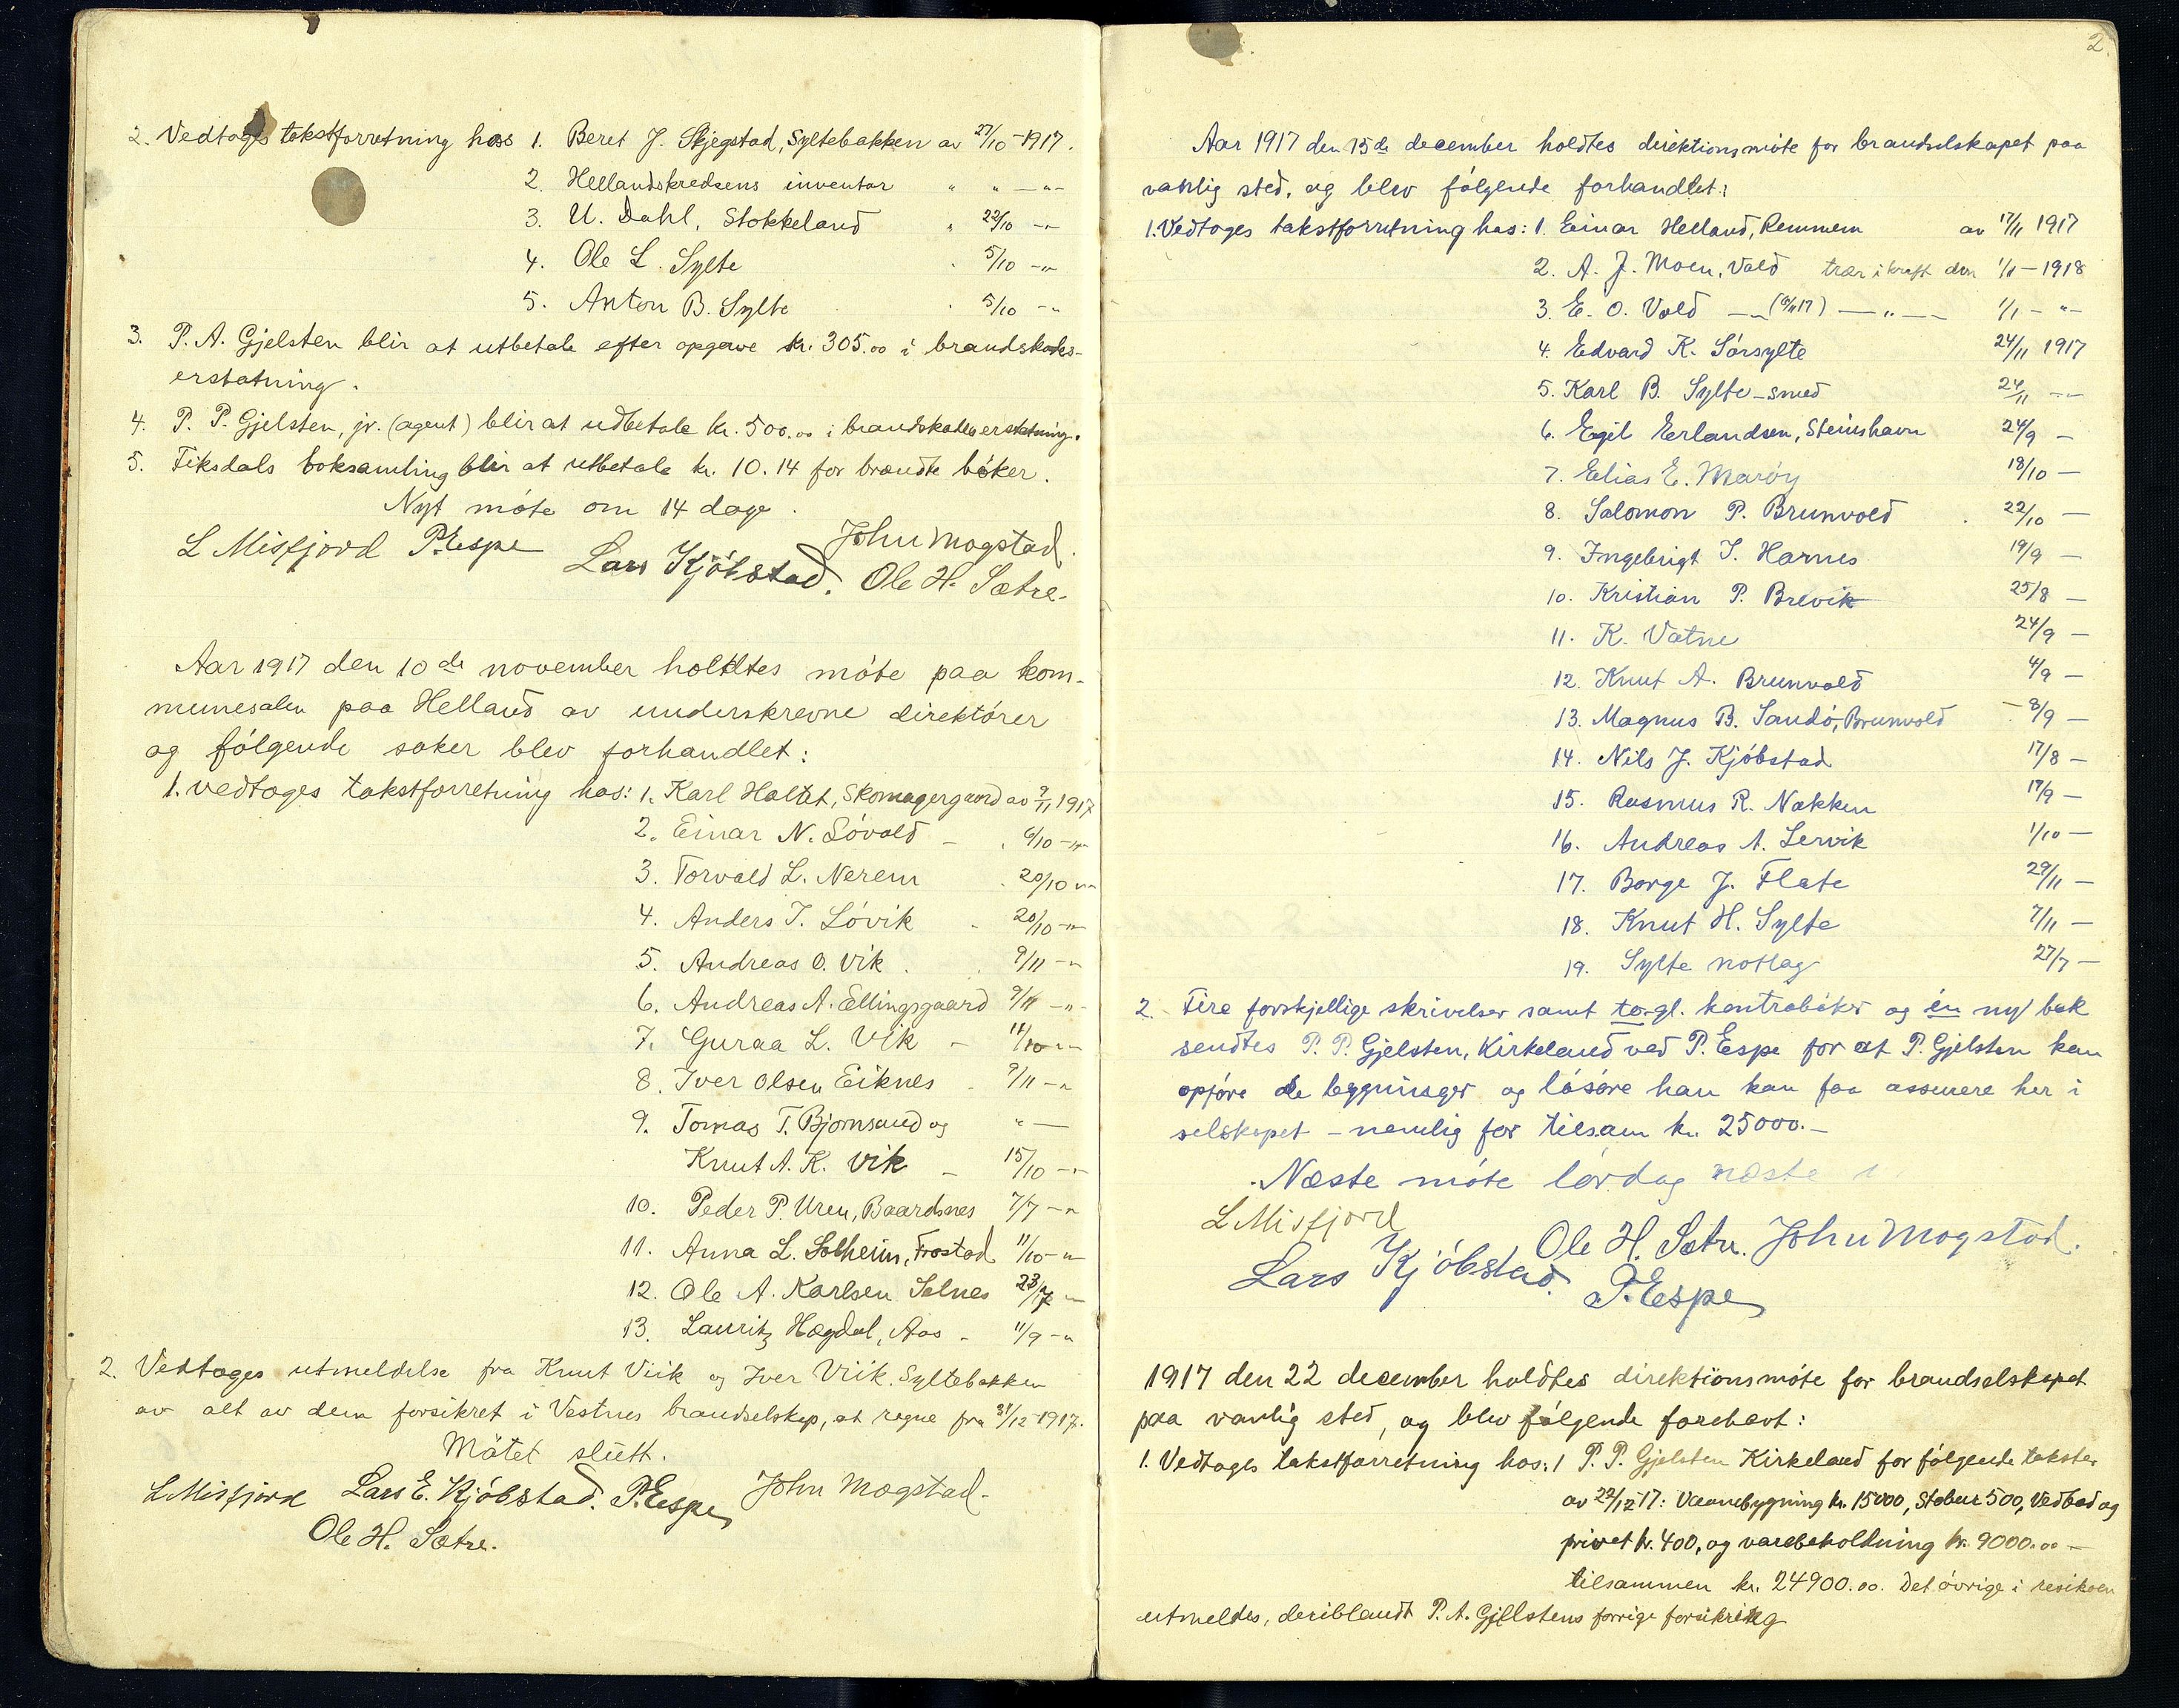 2. Vedtoges takstforretning hos 1. Beret J. Skjegstad, Syltebakken av 27/10-1917.
2. Hellandskredsens inventar " " — " —
3. U. Dahl, Stokkeland " 22/10 — "
4. Ole L. Sylte . 5/10 — "
5. Anton B. Sylte . 5/10 — "
3. P. A. Gjelsten blir at utbetale efter opgave kr. 305.00 i brandskades-
erstatning.
4. P. P. Gjelsten, jr. (agent) blir at udbetale kr. 500.00 i brandskadeserstatning.
5. Fiksdals boksamling blir at utbetale kr. 10.14 for brændte bøker.
Nyt møte om 14 dage.
L Misfjord P. Espe Lars Kjøbstad. John Mogstad.
Ole H. Sætre.
Aar 1917 den 10de november holdtes møte paa kom-
munesalen paa Helland av underskrevne direktører
og følgende saker blev forhandlet:
1. vedtoges takstforretning hos: 1. Karl Haltet, Skomagergaard av 9/11 1917
2. Einar N. Løvold — . 6/10 — " —
3. Torvald L. Nerem . 20/10 — "
4. Anders T. Løvik . 20/10 — "
5. Andreas O. Vik . 9/11 — "
6. Andreas A. Ellingsgaard 9/11 — " —
7. Guraa L. Vik — 11/10 — "
8. Iver Olsen Eiknes . 9/11 — "
9. Tomas T. Bjørnsund og " —
Knut A. K. Vik — 15/10 — "
10. Peder P. Uren, Baardsnes 7/7 — "
11. Anna L. Solheim, Frostad 11/10 — "
12. Ole A. Karlsen Solnes 23/7 —
13. Lauritz Hægdal, Aas - 11/9 — "
2. Vedtoges utmeldelse fra Knut Viik og Iver Viik. Syltebakken
av alt av dem forsikret i Vestnes brandselskap, at regne fra 31/12-1917.
Møtet slutt.
L Misfjord Lars E. Kjøbstad. P. Espe John Mogstad.
Ole H. Sætre.
2.
Aar 1917 den 15de december holdtes direktionsmøte for brandselskapet paa
vanlig sted, og blev følgende forhandlet:
1. Vedtoges takstforretning hos: 1. Einar Helland, Remmem av 17/11 1917
2. A. J. Moen, Vold trær i kraft den 1/1 — 1918
3. E. O. Vold — " — " — 1/1 — " —
4. Edvard K. Sørsylte 24/11 1917
5. Karl B. Sylte - smed 24/11 — " —
6. Egil Erlandsen, Steinshavn 24/9 —
7. Elias E. Marøy 18/10 —
8. Salomon P. Brunvold . 22/10 —
9. Ingebrigt I. Harnes 19/9 —
10. Kristian P. Brevik 25/8 —
11. K. Vatne 24/9 —
12. Knut A. Brunvold 4/9 —
13. Magnus B. Sandø, Brunvold — 8/9 —
14. Nils J. Kjøbstad 17/8 —
15. Rasmus R. Nakken 17/9 —
16. Andreas A. Lervik 1/10 —
17. Borge J. Flate 29/11 —
18. Knut H. Sylte 7/11 —
19. Sylte notlag 27/7 —
2. Fire forskjellige skrivelser samt to gl. kontrabøker og én ny bok
sendtes P. P. Gjelsten, Kirkeland ved P. Espe for at P. Gjelsten kan
opføre de bygninger og løsøre han kan faa assurere her i
selskapet — nemlig for tilsam kr. 25000.—
Næste møte lørdag næste
L Misfjord Ole H. Sætre. John Mogstad.
Lars Kjøbstad. P. Espe
1917 den 22 december holdtes direktionsmøte for brandselskapet
paa vanlig sted, og blev følgende forehavt:
1. Vedtoges takstforretning hos: 1 P. P. Gjelsten Kirkeland for følgende takster
av 22/12 17: Vaanebygning kr. 15000, Stabur 500, Vedbod og
privet kr. 400, og varebeholdning kr. 9000.00 —
tilsammen kr. 24900.00. Det øvrige i resikoen
utmeldes, deriblandt P. A. Gjelstens forrige forsikring